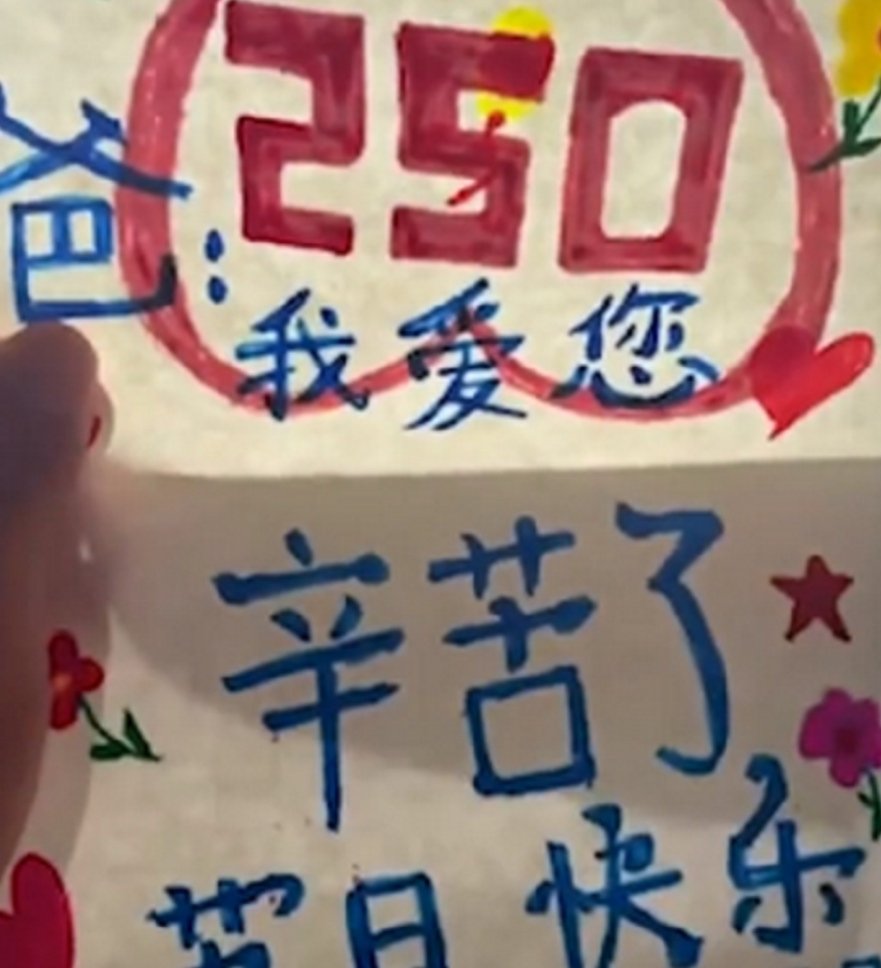 250
爸:
我爱您
辛苦了
节日快乐